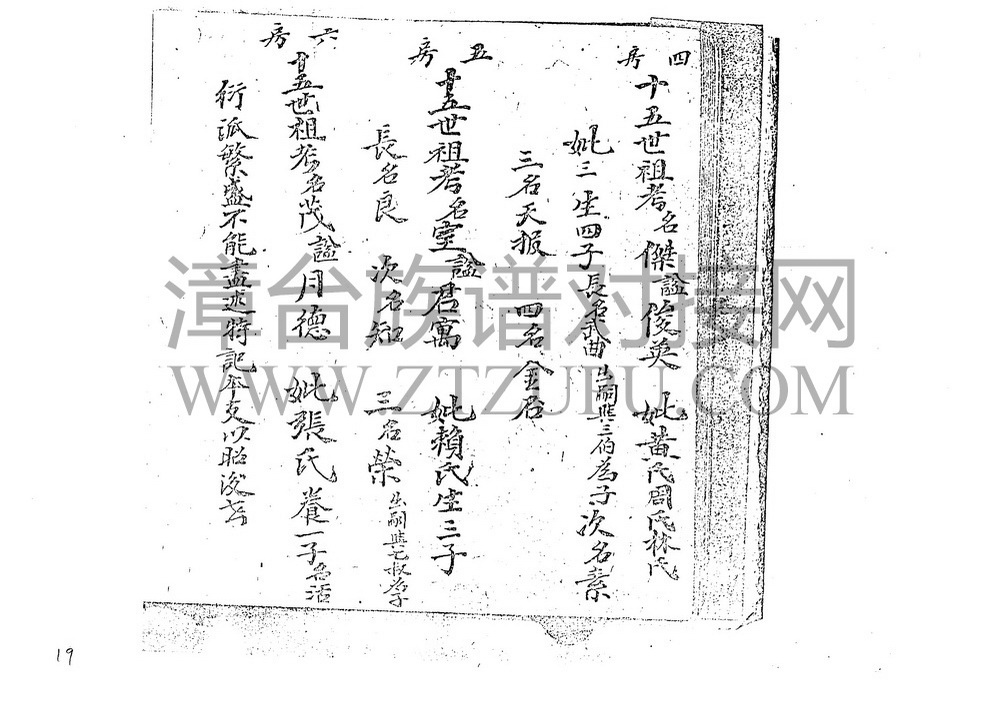 四房
十五世祖考名傑諡俊英 妣黃氏周氏林氏
妣三生四子長名武曲出嗣與三伯為子次名素
三名天報 四名金君
五房
十五世祖考名室諡君寓 妣賴氏生三子
長名良 次名知 三名榮出嗣與七叔為子
六房
十五世祖考名茂諡月德 妣張氏養一子名活
衍派繁盛不能盡述特記本支以昭後
漳台族谱对接网
WWW.ZTZUPU.COM
19